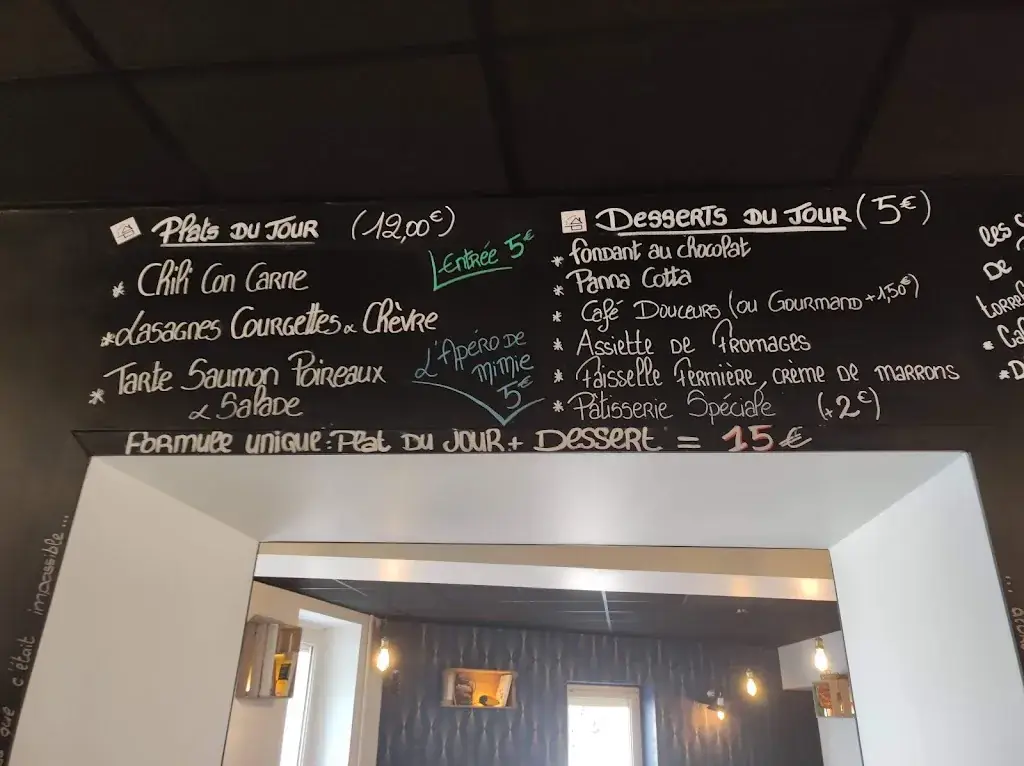 Plats du Jour (12,00€)
* Chili Con Carne
Entrée 5€
* Lasagnes Courgettes & Chèvre
* Tarte Saumon Poireaux
& Salade
L'Apéro de
Mimie
5€
Desserts du Jour (5€)
* fondant au chocolat
* Panna Cotta
* Café Douceurs (ou Gourmand +1,50€)
* Assiette de fromages
* Faisselle fermière, crème de marrons
* Pâtisserie Spéciale (+2€)
Formule unique: Plat du jour + Dessert = 15€
les
De
* D
que c'était impossible...